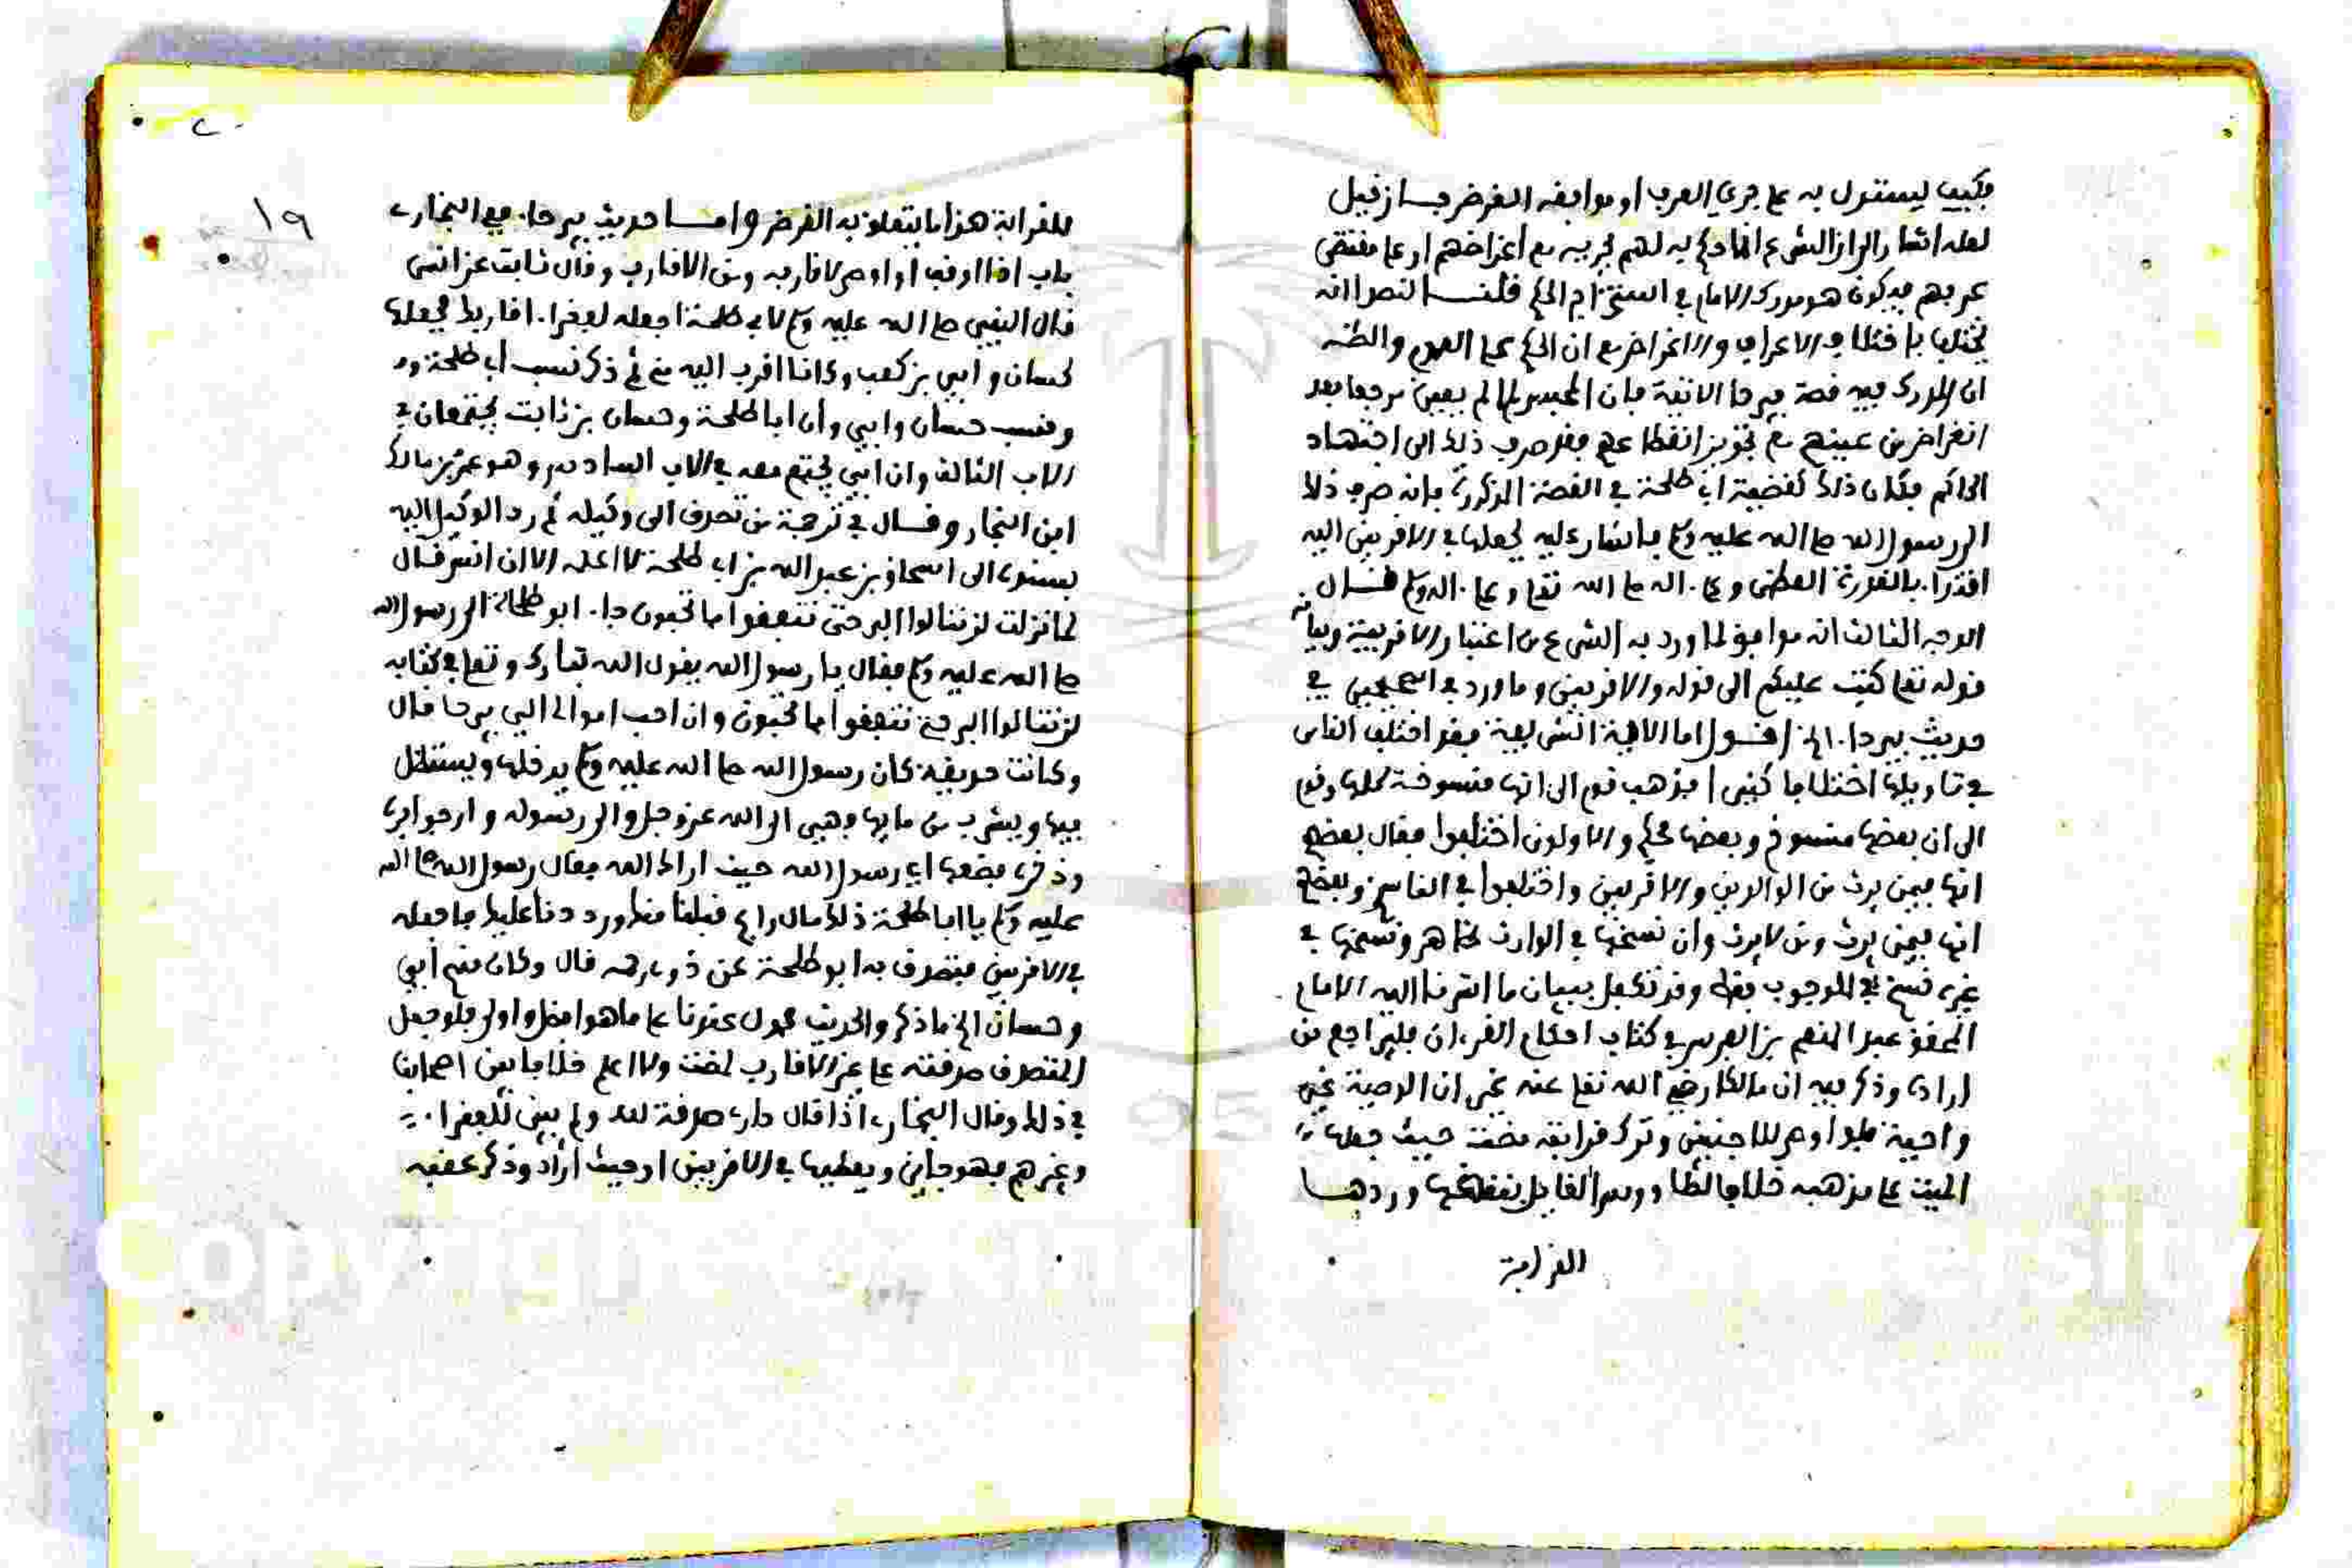 فكيف يستدل به على جري العرب او موافقة الغرض فان قيل
لعله اشار الى ان الشرع انما حكم به لهم لجريه مع أغراضهم او على مقتضى
عربهم فيكون هو مدرك الامام في استخدام الحكم قلنا النص انه
يختلف باختلاف الاعراف والاغراض مع ان الحكم على العموم والظن
ان المدرك فيه قصة بيرحا الاتية فان المحبس لما لم يعين مرجعا بعد
انقراض من عينهم مع تجويز انقطاعهم فقد صرف ذلك الى اجتهاد
الحاكم فكان ذلك كقضية ابي طلحة في القصة المذكورة فانه صرف ذلك
الى رسول الله صلى الله عليه وسلم فاشار عليه بجعلها في الاقربين اليه
اقتداء بالقدرة العظمى وعلى اله صلى الله تعلى وعلى اله وسلم قال
الوجه الثالث انه موافق لما ورد به الشرع من اعتبار الاقربية وبيانه
قوله تعلى كتب عليكم الى قوله والاقربين وما ورد في الصحيحين في
حديث بيرحا الخ اقول اما الاية الشريفة فقد اختلف الناس
في تاويلها اختلافا كثيرا فذهب قوم الى انها منسوخة كلها وقوم
الى ان بعضها منسوخ وبعضها محكم والاولون اختلفوا فقال بعضهم
انها فيمن يرث من الوالدين والاقربين واختلفوا في الناسخ وبعضهم
انها فيمن يرث ومن لا يرث وان نسخها في الوارث ظاهر ونسخها في
غيره نسخ للوجوب فقط وقد تكفل ببيان ما اشرنا اليه الامام
المحقق عبد المنعم بن الفرس في كتاب احكام القرءان فليراجع من
اراده وذكر فيه ان مالكا رضي الله تعلى عنه يرى ان الوصية غير
واجبة فلو اوصى للاجنبي وترك قرابته مضت حيث جعلها
الميت على مذهبه خلافا لطاووس القايل بنقضها وردها
القرابة
١٩
للقرابة هذا ما يتعلق به الغرض واما حديث بيرحا ففي البخاري
باب اذا اوقف او اوصى لاقاربه ومن الاقارب وقال ثابت عن انس
قال النبي صلى الله عليه وسلم لابي طلحة اجعله لفقراء اقاربك فجعلها
لحسان وابي بن كعب وكانا اقرب اليه مني ثم ذكر نسب ابي طلحة
ونسب حسان وابي وأن ابا طلحة وحسان بن ثابت يجتمعان في
الاب الثالث وان ابي يجتمع معه في الاب السادس وهو عمرو بن مالك
ابن النجار وقال في ترجمة من تصدق الى وكيله ثم رد الوكيل اليه
بسنده الى اسحاق بن عبد الله بن ابي طلحة لا اعلمه الا عن انس قال
لما نزلت لن تنالوا البر حتى تنفقوا مما تحبون جاء ابو طلحة الى رسول الله
صلى الله عليه وسلم فقال يا رسول الله يقول الله تبارك وتعلى في كتابه
لن تنالوا البر حتى تنفقوا مما تحبون وان احب اموالي الي بيرحا قال
وكانت حديقة كان رسول الله صلى الله عليه وسلم يدخلها ويستظل
فيها ويشرب من مايها فهي الى الله عز وجل والى رسوله وارجو برها
وذخرها فضعها اي رسول الله حيث اراك الله فقال رسول الله صلى الله
عليه وسلم يا ابا طلحة ذلك مال رابح قبلناه منك ورددناه عليك فاجعله
في الاقربين فتصدق به ابو طلحة على ذوي رحمه قال وكان منهم أبي
وحسان الى ما ذكر والحديث محمول عندنا على ما هو افضل واولى فلو جعل
المتصدق صدقته على غير الاقارب لمضت ولا اعلم خلافا بين اصحابنا
في ذلك وقال البخاري اذا قال داري صدقة لله ولم يبين للفقراء
وغيرهم فهو جائز ويعطيها في الاقربين او حيث أراد وذكر عقبه